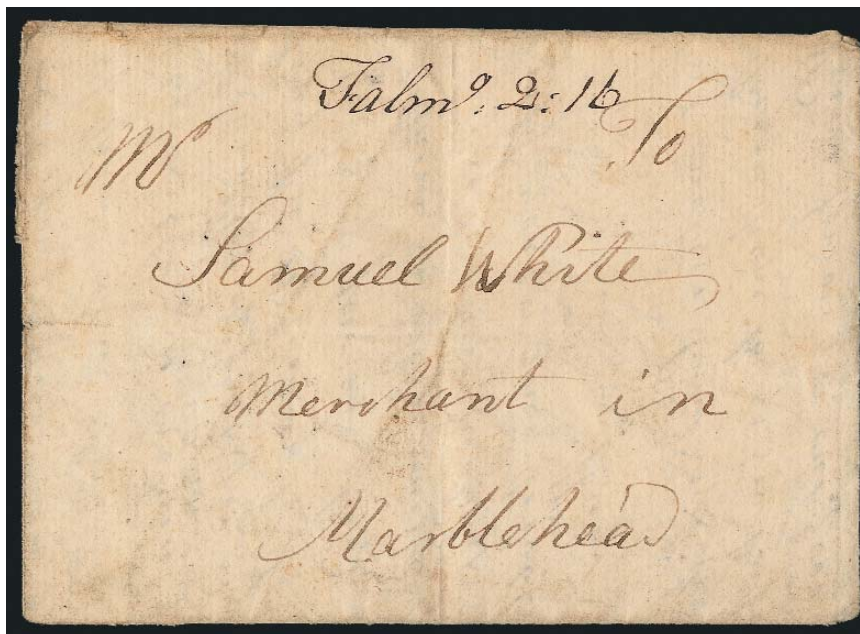 Falmº: 2: 16
To
Mr
Samuel White
Merchant in
Marblehead